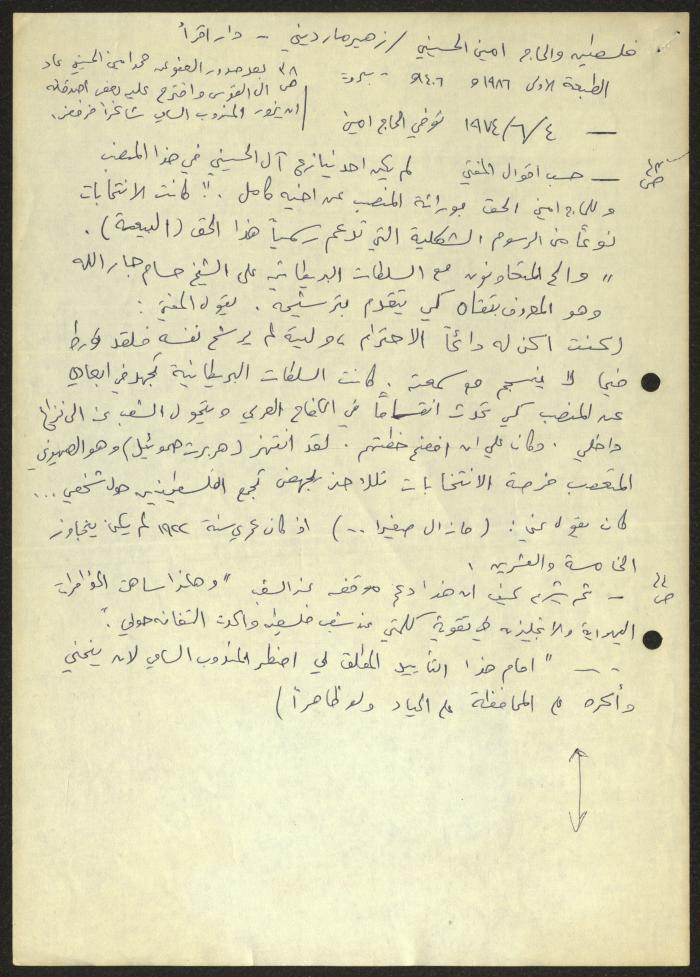 فلسطين والحاج امين الحسيني / زهير مارديني - دار اقرأ
الطبعة الاولى ١٩٨٦ و ١٤٠٦ - بيروت
ص ٣٨ بعد صدور العفو عن محمد امين الحسيني عاد
ال القدس واقترح عليه بعض اصدقائه
ان يزور المندوب السامي شاكراً فرفض.
— ١٩٧٤/٦/٤ توفي الحاج امين
ص ٤٣
— حسب اقوال المفتي لم يكن احد ينازع آل الحسيني في هذا المنصب
وللحاج امين الحق بوراثة المنصب عن اخيه كامل. كانت الانتخابات
نوعاً من الرسوم الشكلية التي تدعم رسمياً هذا الحق (البيعة).
" والح المتعاونون مع السلطات البريطانية على الشيخ حسام جار الله
وهو المعروف بتقاه كي يتقدم بترشيحه. يقول المفتي:
(كنت اكن له دائماً الاحترام، وليته لم يرشح نفسه فلقد تورط
فيما لا ينسجم مع سمعته. كانت السلطات البريطانية تجهد في ابعادي
عن المنصب كي تحدث انقساماً في الكفاح العربي ويتحول الشعب عن الى نزاع
داخلي. وكان علي ان افضح خطتهم. لقد انتهز (هربرت صموئيل) وهو الصهيوني
المتعصب فرصة الانتخابات تلك تجمع الفلسطينيين حول شخصي ...
كان يقول عني: (ما زال صغيرا ...) اذ كان عمري سنة ١٩٢٢ لم يكن يتجاوز
الخامسة والعشرين.
ص ٤٤
— ثم كيف ان هذا دعم موقفه عند الشعب "وهكذا ساهمت المؤامرات
اليهودية والانجليزية في تقوية كلمتي عند شعب فلسطين واكدت التفافه حولي".
— " امام هذا التأييد المطلق لي اضطر المندوب السامي لان ينحني
وأكره على المحافظة على الحياد ولو ظاهراً)